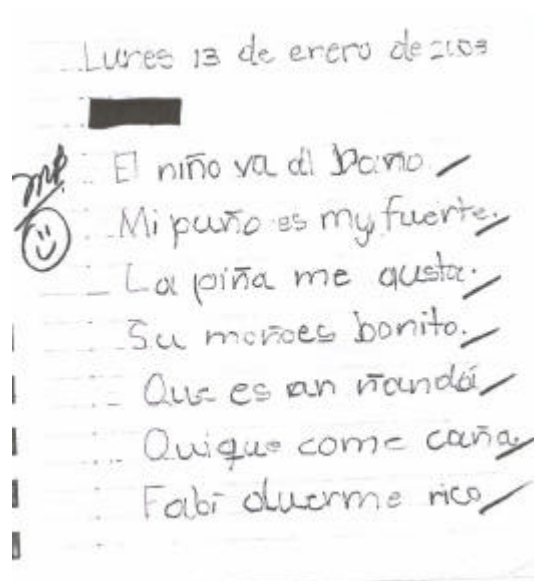 Lunes 13 de enero de 2003
MP
El niño va al baño.
Mi puño es my fuerte.
La piña me gusta.
Su moño es bonito.
Que es un ñandú
Quique come caña.
Fabi duerme rico